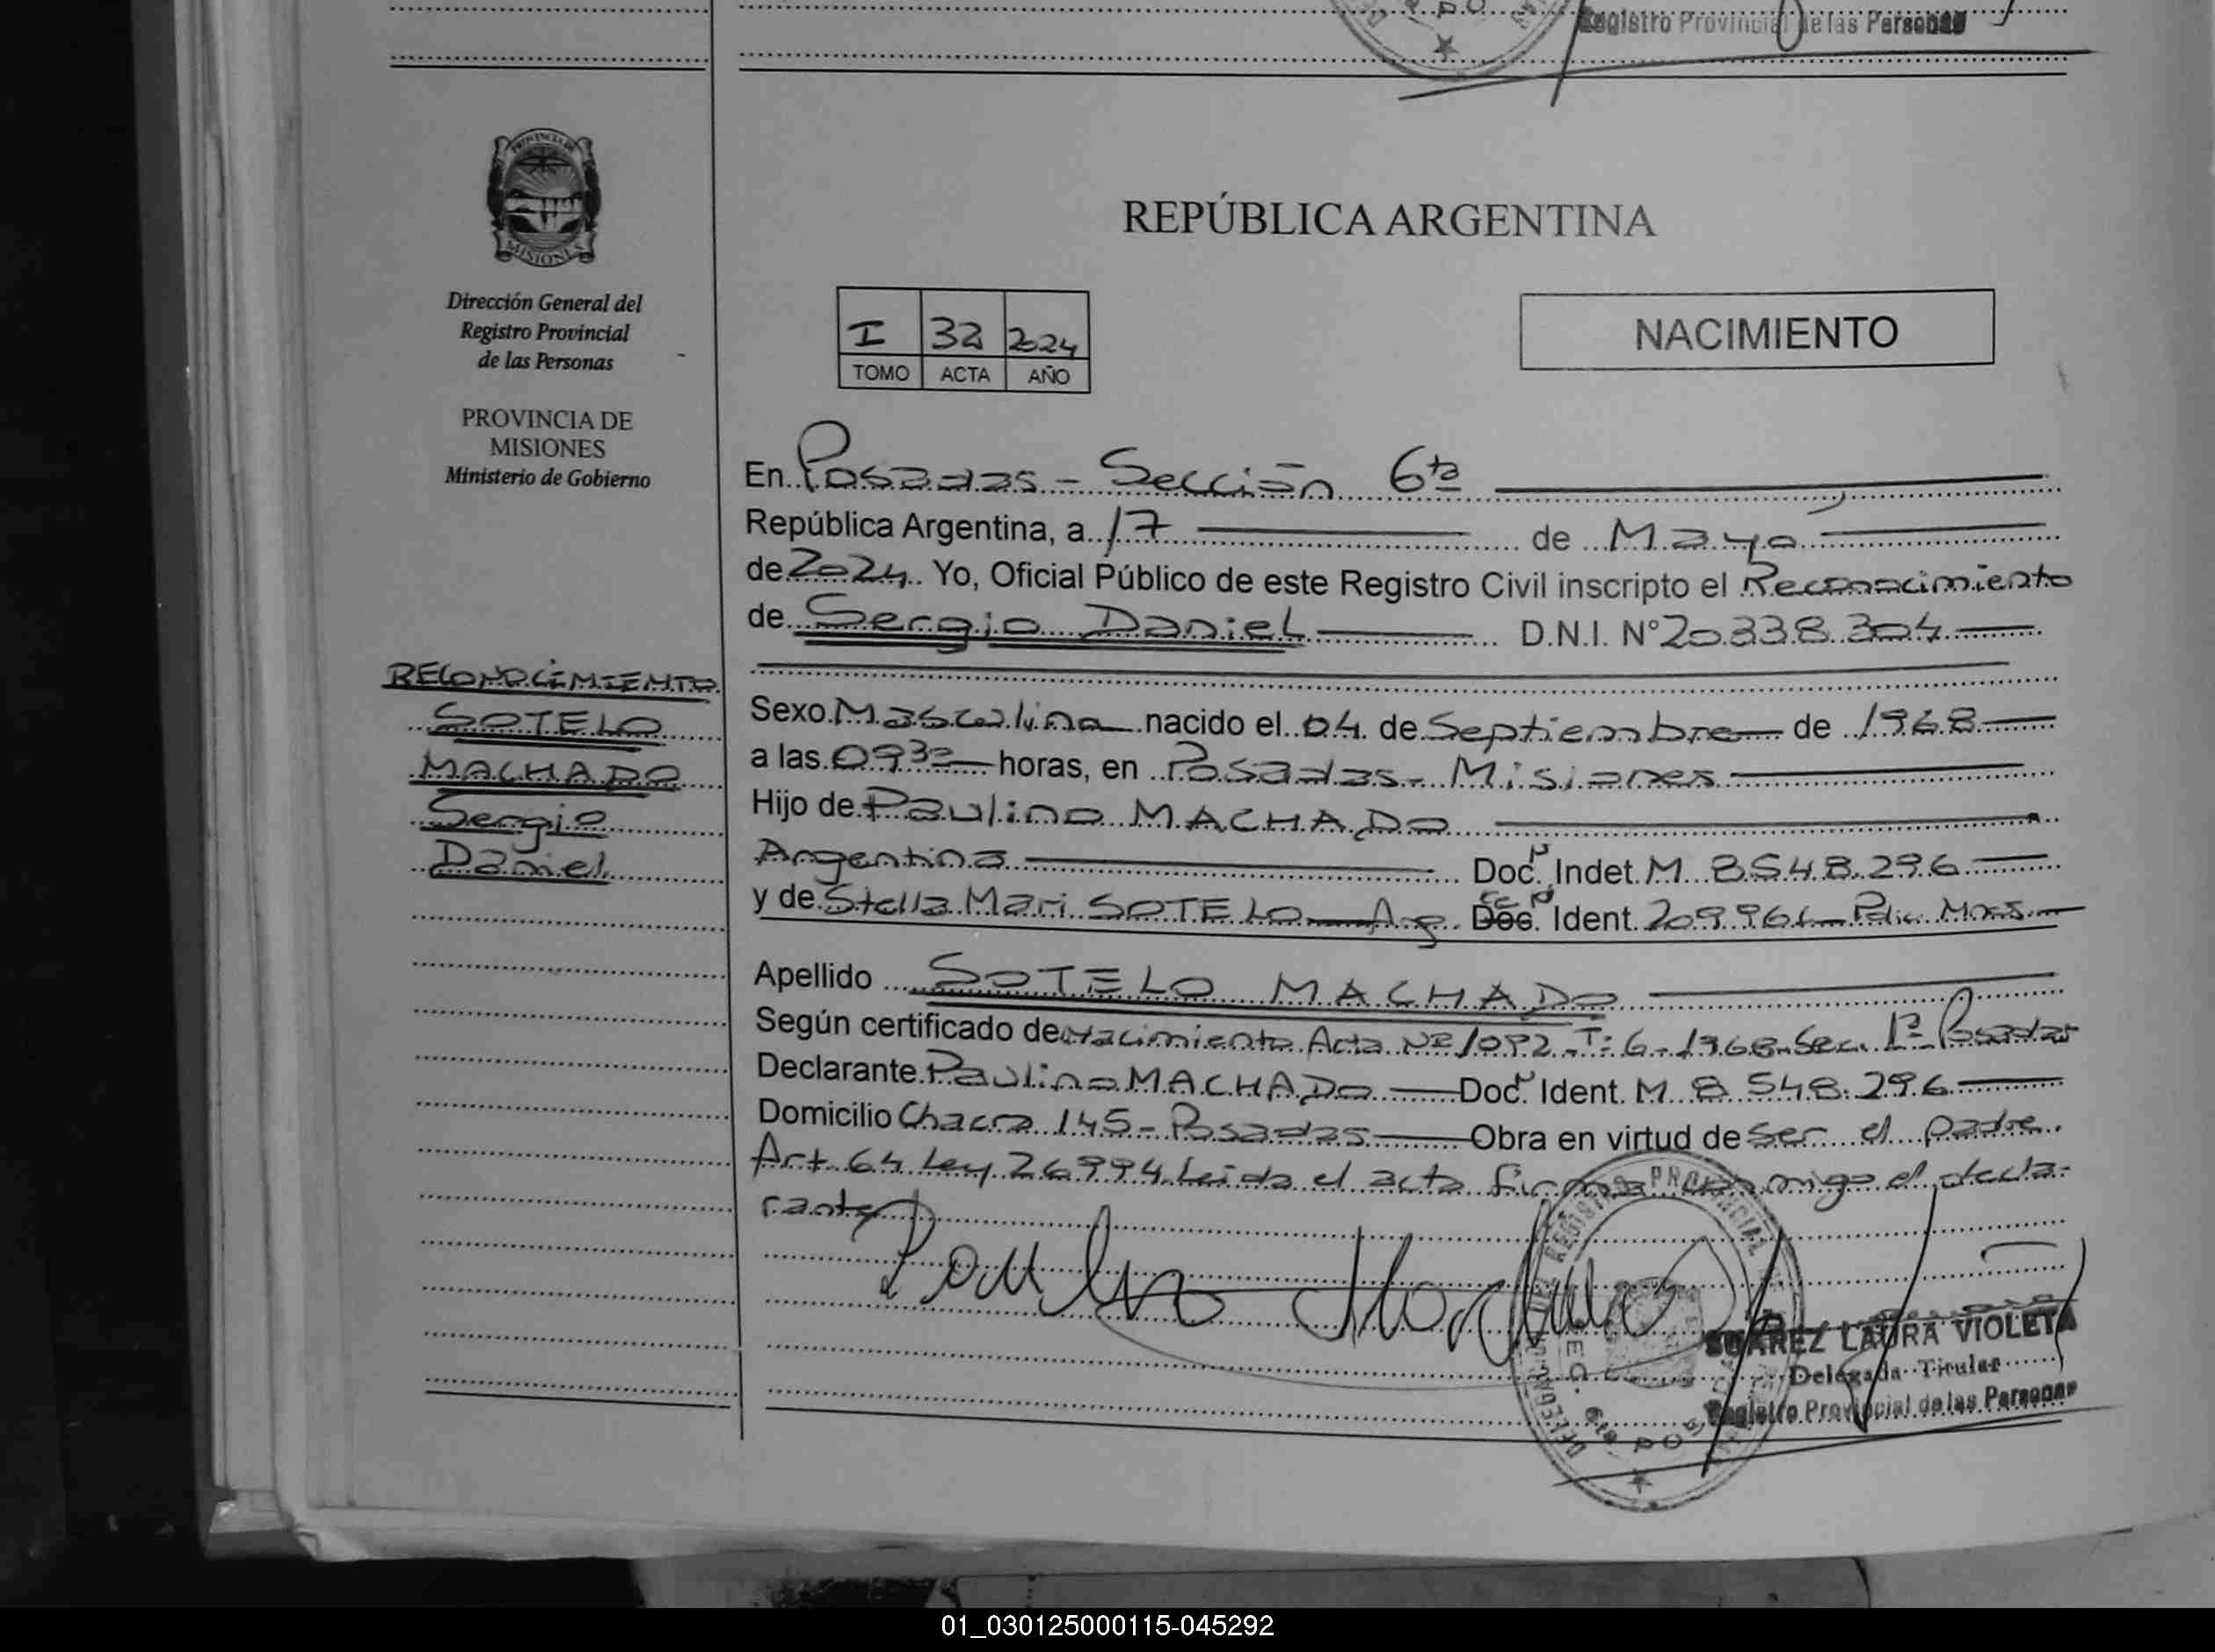 Registro Provincial de las Personas
PROVINCIA DE
MISIONES
Dirección General del
Registro Provincial
de las Personas
PROVINCIA DE
MISIONES
Ministerio de Gobierno
RECONOCIMIENTO
SOTELO
MACHADO
Sergio
Daniel
REPÚBLICA ARGENTINA
I 32 2024
TOMO ACTA AÑO
NACIMIENTO
En Posadas - Sección 6ta
República Argentina, a 17 de Mayo
de 2024 Yo, Oficial Público de este Registro Civil inscripto el Reconocimiento
de Sergio Daniel D.N.I. N° 20.338.304
Sexo Masculino nacido el 04 de Septiembre de 1968
a las 0930 horas, en Posadas - Misiones
Hijo de Paulino MACHADO
Argentino Doc. Indet. M 8.548.296
y de Stella Mari SOTELO Arg. Doc. Ident. Polic. Mnes.
Apellido SOTELO MACHADO
Según certificado de Nacimiento Acta Nº 1092 - T: 6 - 1968 - Sec. 1ª Posadas
Declarante Paulino MACHADO Doc. Ident. M 8.548.296
Domicilio Chacra 145 - Posadas Obra en virtud de Ser el padre.
Art 64 Ley 26994. Leida el acta firma conmigo el decla-
rante
SUAREZ LAURA VIOLETA
Delegada Titular
Registro Provincial de las Personas
01_030125000115-045292